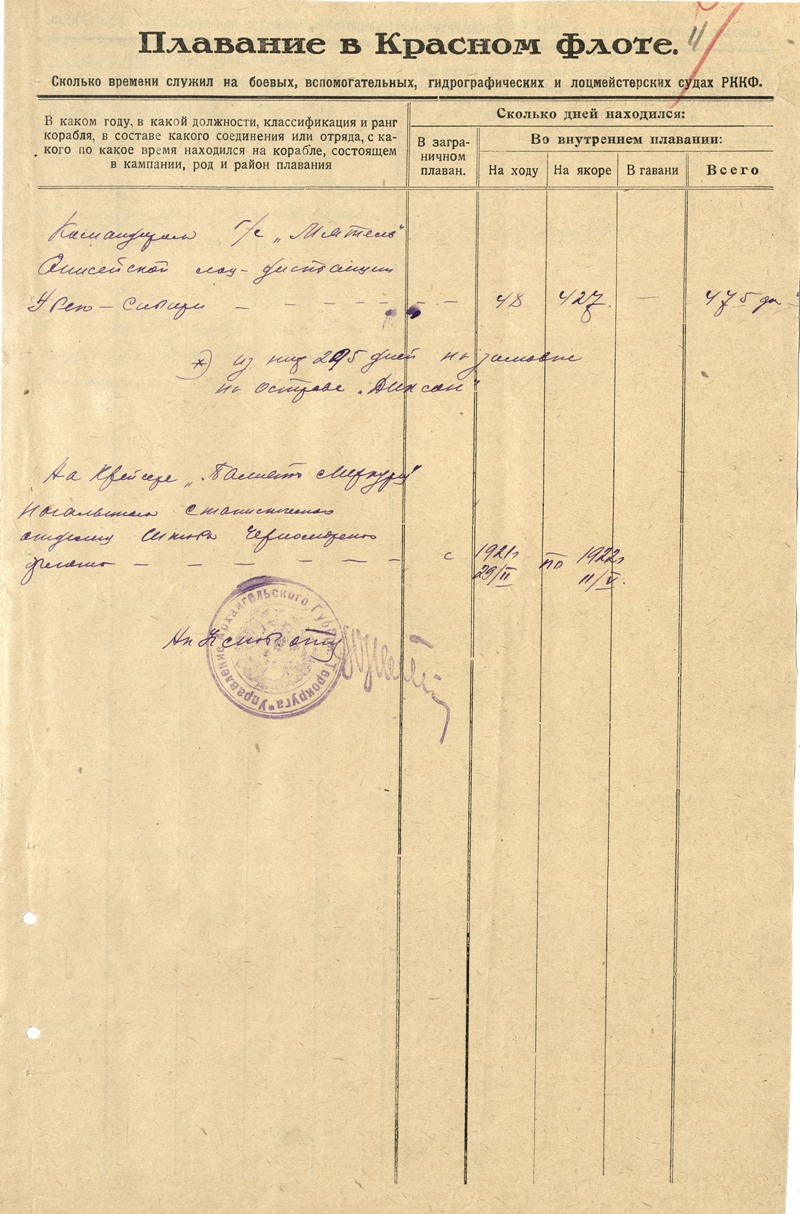 Плавание в Красном флоте.
4
Сколько времени служил на боевых, вспомогательных, гидрографических и лоцмейстерских судах РККФ.
В каком году, в какой должности, классификация и ранг
корабля, в составе какого соединения или отряда, с ка-
кого по какое время находился на корабле, состоящем
в кампании, род и район плавания
Сколько дней находился:
В загра-
ничном
плаван.
Во внутреннем плавании:
На ходу
На якоре
В гавани
Всего
Командиром г/с „Мятель"
Енисейской лоц-дистанции
Убеко-Сибири - - - - - - - 48 427. — 475 дн
*) из них 295 дней на зимовке
на острове „Диксон"
На Крейсере „Память Меркурия"
Начальником статистического
отделения Штаба Черноморского
флота — — — — — — с 1921г по 1922г
29/II 11/V.
Управление Архангельского Губ Террокруга